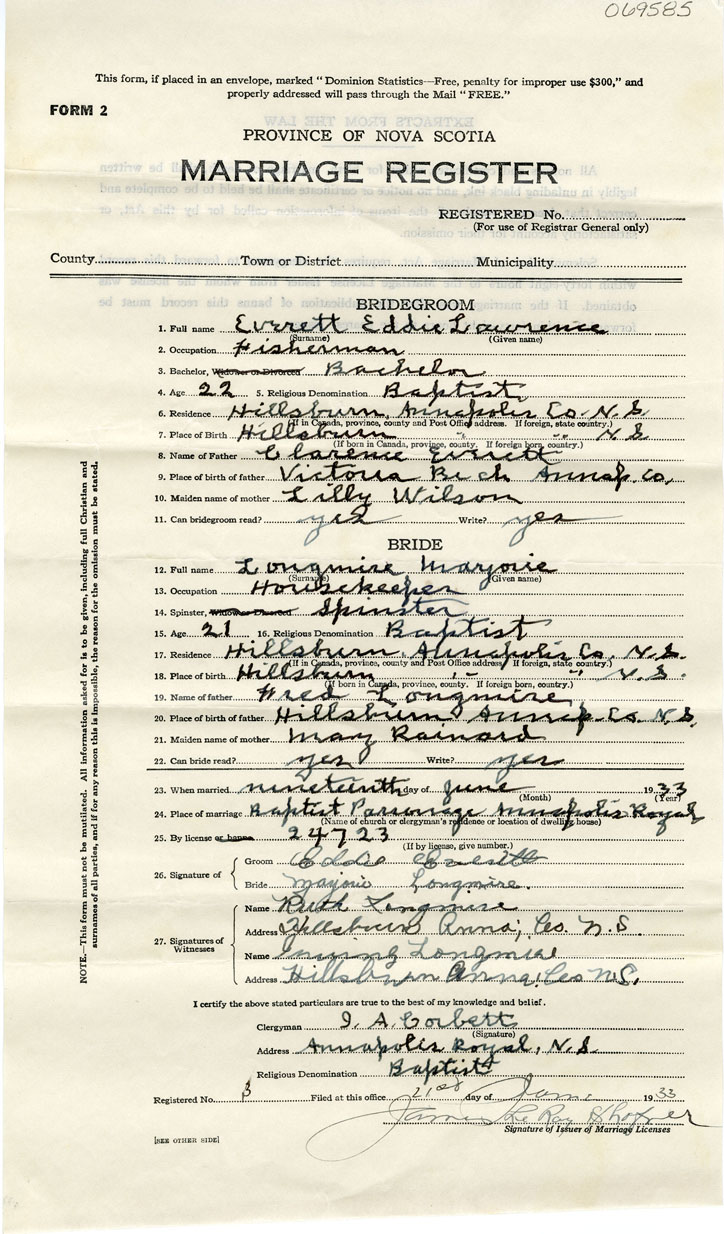 069585
This form, if placed in an envelope, marked "Dominion Statistics—Free, penalty for improper use $300," and
properly addressed will pass through the Mail "FREE."
FORM 2
PROVINCE OF NOVA SCOTIA
MARRIAGE REGISTER
REGISTERED No.
(For use of Registrar General only)
County Town or District Municipality
BRIDEGROOM
1. Full name Everrett Eddie Lawrence
(Surname) (Given name)
2. Occupation Fisherman
3. Bachelor, Widower or Divorced Bachelor
4. Age 22 5. Religious Denomination Baptist
6. Residence Hillsburn, Annapolis Co. N.S
(If in Canada, province, county and Post Office address. If foreign, state country.)
7. Place of Birth Hillsburn " " N.S
(If born in Canada, province, county. If foreign born, country.)
8. Name of Father Clarence Everett
9. Place of birth of father Victoria Bech Annap. Co,
10. Maiden name of mother Lilly Wilson
11. Can bridegroom read? yes Write? yes
BRIDE
12. Full name Longmire Marjorie
(Surname) (Given name)
13. Occupation Housekeeper
14. Spinster, Widow or Divorced Spinster
15. Age 21 16. Religious Denomination Baptist
17. Residence Hillsburn, Annapolis Co. N.S.
(If in Canada, province, county and Post Office address. If foreign, state country.)
18. Place of birth Hillsburn " " N.S.
(If born in Canada, province, county. If foreign born, country.)
19. Name of father Fred Longmire
20. Place of birth of father Hillsburn Annap. Co. N.S,
21. Maiden name of mother Mary Rainard
22. Can bride read? yes Write? yes
23. When married nineteenth day of June 1933
(Month) (Year)
24. Place of marriage Baptist Parsonage Annapolis Royal
(Name of church or clergyman's residence or location of dwelling house)
25. By license or banns 24723
(If by license, give number.)
26. Signature of
Groom Eddie Everett
Bride Marjorie Longmire.
27. Signatures of Witnesses
Name Ruth Longmire
Address Hillsburn Anna; Co. N.S.
Name Longmire
Address Hillsburn Anna, Co N.S,
I certify the above stated particulars are true to the best of my knowledge and belief.
Clergyman I. A. Corbett
(Signature)
Address Annapolis Royal, N.S.
Religious Denomination Baptist
Registered No. 3 Filed at this office 21st day of June 1933
James Le Roy
Signature of Issuer of Marriage Licenses
[SEE OTHER SIDE]
NOTE.—This form must not be mutilated. All information asked for is to be given, including full Christian and
surnames of all parties, and if for any reason this is impossible, the reason for the omission must be stated.